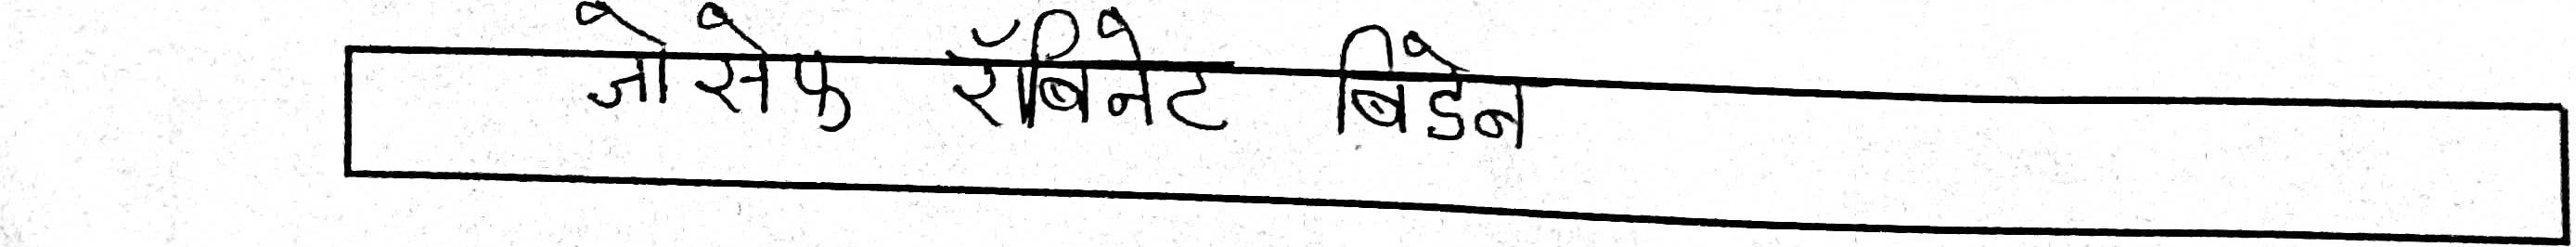 जोसेफ रॉबिनेट बिडेन